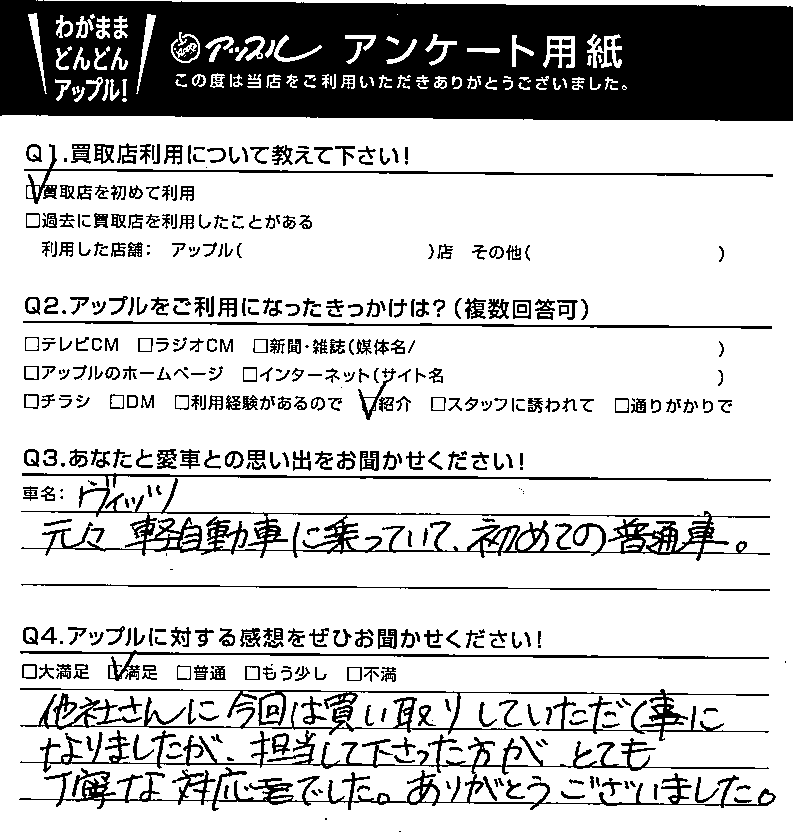 わがまま
どんどん
アップル!
アップル アンケート用紙
この度は当店をご利用いただきありがとうございました。
Q1.買取店利用について教えて下さい!
☑買取店を初めて利用
□過去に買取店を利用したことがある
利用した店舗： アップル( )店 その他( )
Q2.アップルをご利用になったきっかけは?(複数回答可)
□テレビCM □ラジオCM □新聞・雑誌(媒体名/ )
□アップルのホームページ □インターネット(サイト名 )
□チラシ □DM □利用経験があるので ☑紹介 □スタッフに誘われて □通りがかりで
Q3.あなたと愛車との思い出をお聞かせください!
車名： ヴィッツ
元々 軽自動車に乗っていて、初めての普通車。
Q4.アップルに対する感想をぜひお聞かせください!
□大満足 ☑満足 □普通 □もう少し □不満
他社さんに今回は買い取りしていただく事に
なりましたが、担当して下さった方が とても
丁寧な対応でした。ありがとうございました。